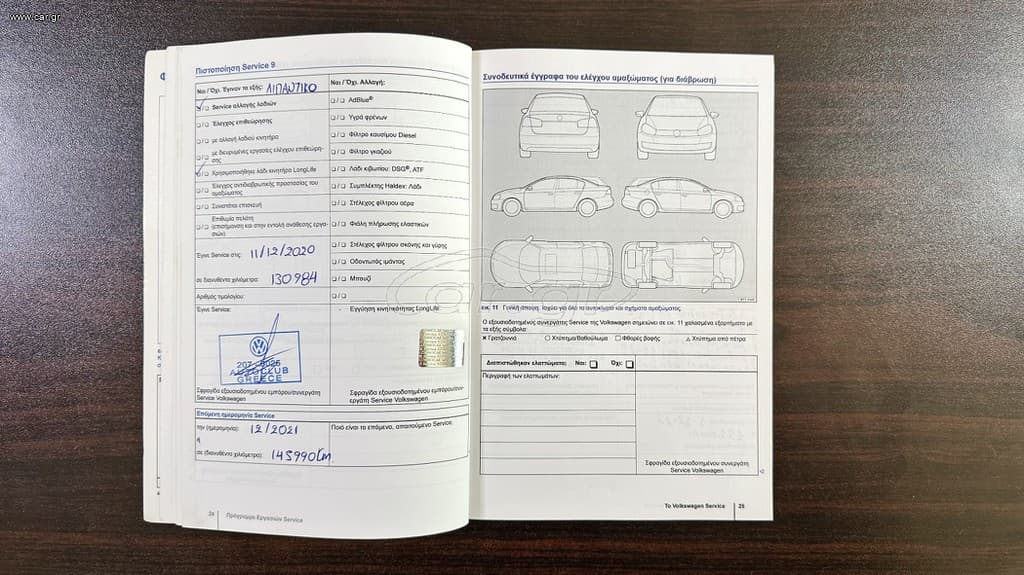 www.car.gr
Πιστοποίηση Service 9
Ναι / Όχι. Έγιναν τα εξής: ΛΙΠΑΝΤΙΚΟ
Service αλλαγής λαδιών
Έλεγχος επιθεώρησης
με αλλαγή λαδιού κινητήρα
με διευρυμένες εργασίες ελέγχου επιθεώρη-
σης
Χρησιμοποιήθηκε λάδι κινητήρα LongLife
Έλεγχος αντιδιαβρωτικής προστασίας του
αμαξώματος
Συνιστάται επισκευή
Επιθυμία πελάτη
(επισήμανση και στην εντολή ανάθεσης εργα-
σιών)
Έγινε Service στις: 11/12/2020
σε διανυθέντα χιλιόμετρα: 130984
Αριθμός τιμολογίου:
Έγινε Service:
207-2025
AUTOCLUB
GREECE
Σφραγίδα εξουσιοδοτημένου εμπόρου/συνεργάτη
Service Volkswagen
Ναι / Όχι. Αλλαγή:
AdBlue®
Υγρά φρένων
Φίλτρο καυσίμου Diesel
Φίλτρο γκαζιού
Λάδι κιβωτίου: DSG®, ATF
Συμπλέκτης Haldex: Λάδι
Στέλεχος φίλτρου αέρα
Φιάλη πλήρωσης ελαστικών
Στέλεχος φίλτρου σκόνης και γύρης
Οδοντωτός ιμάντας
Μπουζί
Εγγύηση κινητικότητας LongLife
Σφραγίδα εξουσιοδοτημένου εμπόρου/συν-
εργάτη Service Volkswagen
Επόμενη ημερομηνία Service
την (ημερομηνία): 12/2021
ή
σε (διανυθέντα χιλιόμετρα): 145990
Ποιό είναι το επόμενο, απαιτούμενο Service:
24 Πρόγραμμα Εργασιών Service
Συνοδευτικά έγγραφα του ελέγχου αμαξώματος (για διάβρωση)
εικ. 11 Γενική άποψη: Ισχύει για όλα τα αυτοκίνητα και σχήματα αμαξώματος.
Ο εξουσιοδοτημένος συνεργάτης Service της Volkswagen σημειώνει σε εικ. 11 χαλασμένα εξαρτήματα με
τα εξής σύμβολα:
Γρατζουνιά Χτύπημα/Βαθούλωμα Φθορές βαφής Χτύπημα από πέτρα
Διαπιστώθηκαν ελαττώματα; Ναι: Όχι:
Περιγραφή των ελαττωμάτων:
Σφραγίδα εξουσιοδοτημένου συνεργάτη
Service Volkswagen
Το Volkswagen Service 25